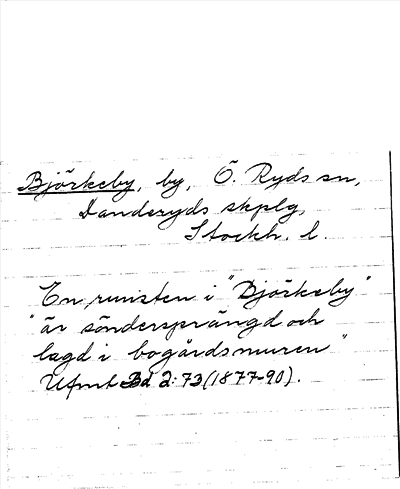 Björkeby, by, Ö. Ryds sn,
Danderyds skplg,
Stockh. l.
En runsten i "Björkeby"
"är söndersprängd och
lagd i bogårdsmuren"
Ufmt Bd 2:73 (1877-90).